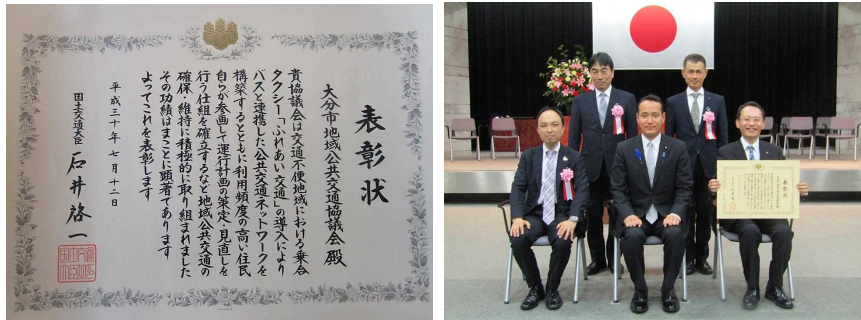 表彰状
大分市地域公共交通協議会殿
貴協議会は交通不便地域における乗合
タクシー「ふれあい交通」の導入により
バスと連携した公共交通ネットワークを
構築するとともに利用頻度の高い住民
自らが参画して運行計画の策定・見直しを
行う仕組を確立するなど地域公共交通の
確保・維持に積極的に取り組まれました
その功績はまことに顕著であります
よってこれを表彰します
平成三十年七月十二日
国土交通大臣 石井啓一
表彰状